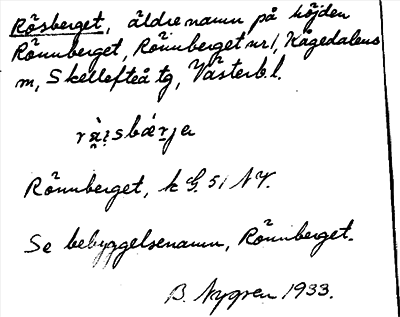 Rösberget, äldre namn på höjden
Rönnberget, Rönnberget nr 1, Kågedalens
m, Skellefteå tg, Västerb. l.
Rönnberget, k G. 51 NV.
Se bebyggelsenamn, Rönnberget.
B. Nygren 1933.